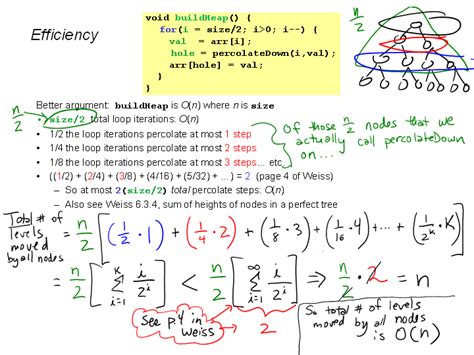 Efficiency
void buildHeap() {
for(i = size/2; i>0; i--) {
val = arr[i];
hole = percolateDown(i,val);
arr[hole] = val;
}
}
n/2
Better argument: buildHeap is O(n) where n is size
n/2
• size/2 total loop iterations: O(n)
• 1/2 the loop iterations percolate at most 1 step
• 1/4 the loop iterations percolate at most 2 steps
• 1/8 the loop iterations percolate at most 3 steps... etc.
Of those n/2 nodes that we
actually call percolateDown
on...
• ((1/2) + (2/4) + (3/8) + (4/16) + (5/32) + ...) = 2 (page 4 of Weiss)
– So at most 2(size/2) total percolate steps: O(n)
– Also see Weiss 6.3.4, sum of heights of nodes in a perfect tree
Total # of
levels
moved
by all nodes
= n/2 [(1/2 · 1) + (1/4 · 2) + (1/8 · 3) + (1/16 · 4) ... + (1/2^k · K)]
= n/2 [ K Σ i=1 i/2^i ] < n/2 [ ∞ Σ i=1 i/2^i ] ⇒ n/2 · 2 = n
See p.4 in
Weiss
2
So total # of levels
moved by all nodes
is O(n)